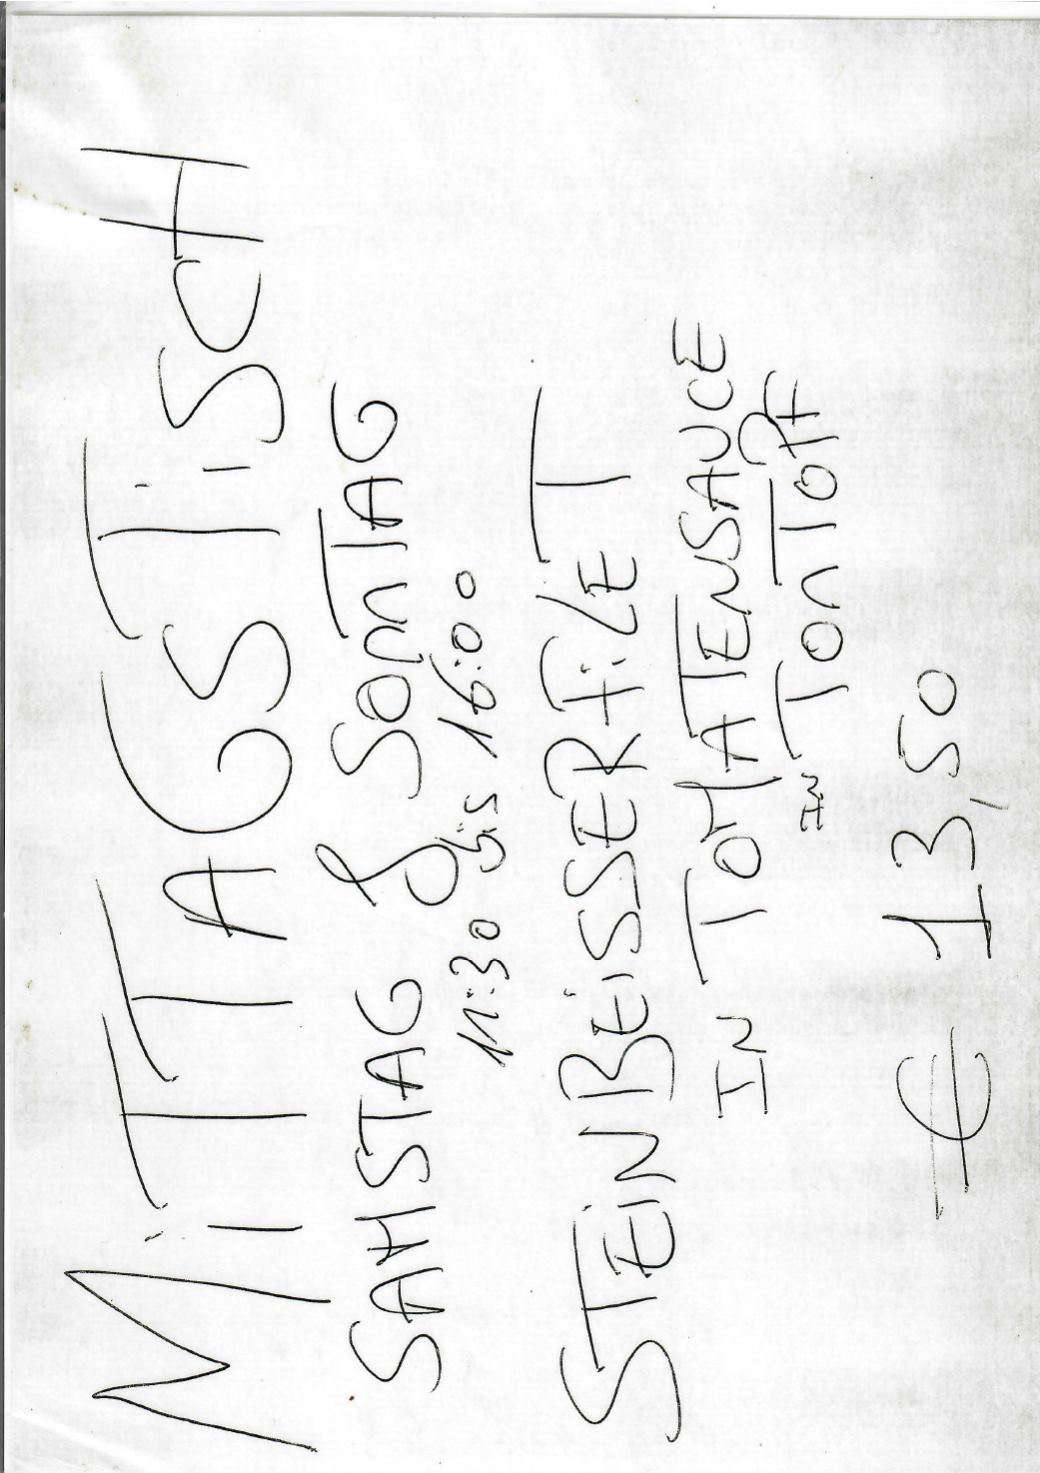 MiTTAGSTiSCH
SAMSTAG & SOMTAG
11:30 bis 16:00
STEiNBEiSSERFiLET
IN TOMATENSAUCE
IN TONTOPF
€ 13,50